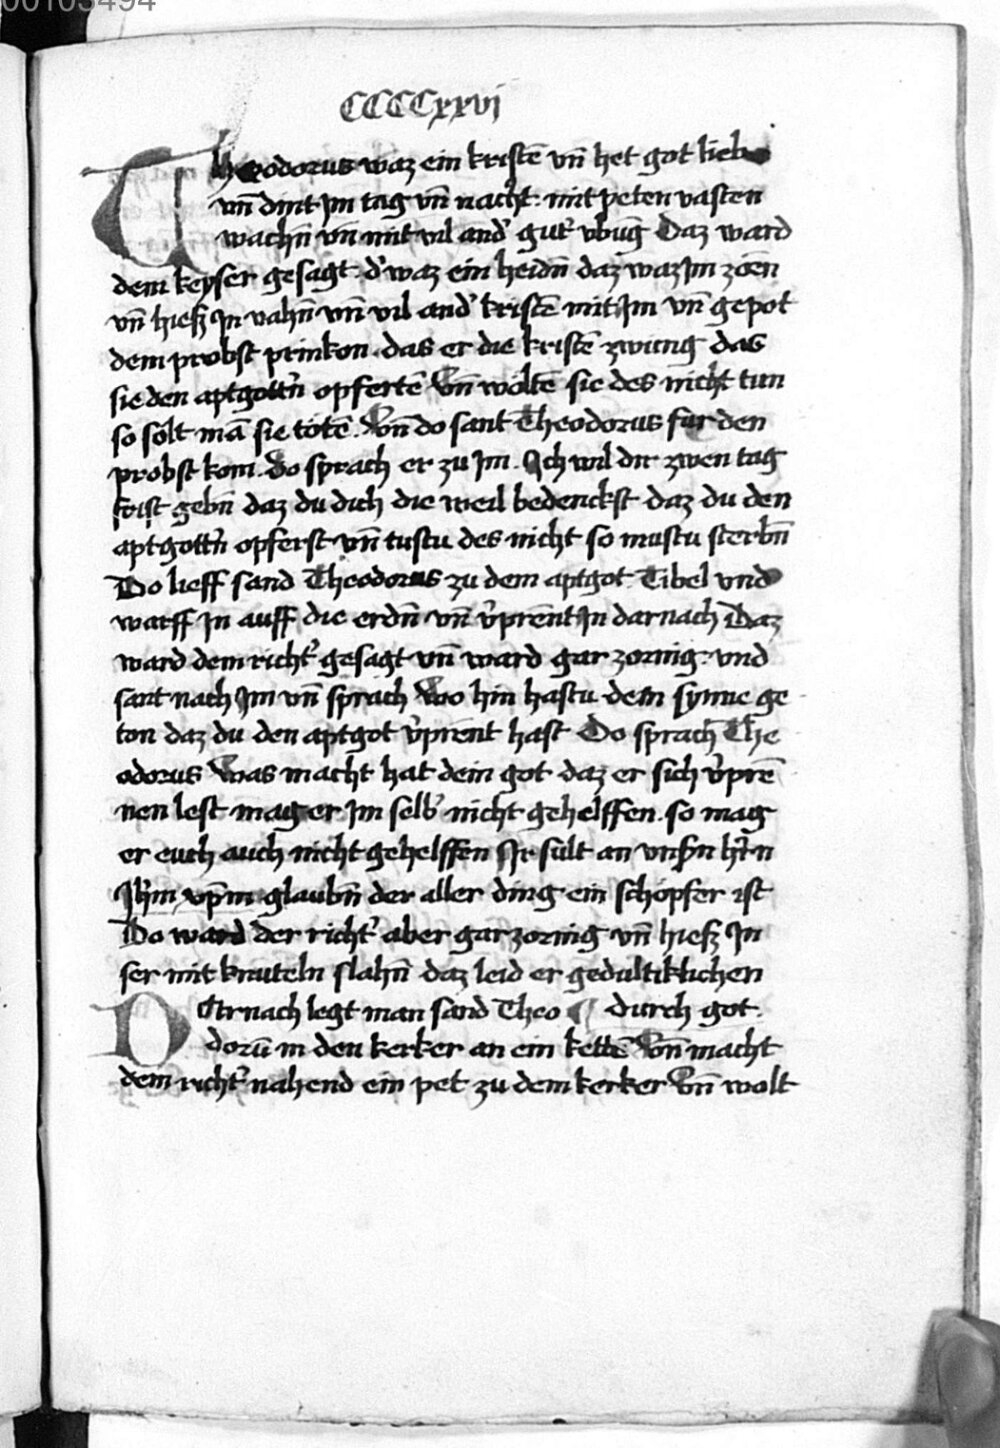 00103494
CCCCxxvi
Theodorus waz ein kristē vn̄ het got lieb
vn̄ dint Jm tag vn̄ nacht. mit peten vasten
wachn̄ vn̄ mit vil and' gut' vbūg Daz ward
dem keyser gesagt. d' waz ein heidn̄ daz waz Jm zoen
vn̄ hieß Jn vahn̄ vn̄ vil and' kristē mit Jm vn̄ gepot
dem probst prinkon. das er die kristē zwūng das
sie den aptgott'n opfertē Vn̄ wöltē sie des nicht tun
so sölt mā sie tötē. Vn̄ do sant Theodorus fur den
probst kom. Do sprach er zu Jm. Jch wil dir zwen tag
frist gebn̄ daz du dich die weil bedenckst daz du den
aptgott'n opferst vn̄ tustu des nicht so mustu sterbn̄
Do lieff sand Theodorus zu dem aptgot Tibel vnd
warff Jn auff die erdn̄ vn̄ v'prent Jn darnach Daz
ward dem richt' gesagt vn̄ ward gar zornig. vnd
sant nach Jm vn̄ sprach Wo hin hastu dein synne ge
ton daz du den aptgot v'prent hast Do sprach The
odorus Was macht hat dein got daz er sich v'prē
nen lest mag er Jm selb' nicht gehelffen. so mag
er euch auch nicht gehelffen Jr sült an vns'n h'rn
Jhm xp̄m glaubn̄ der aller ding ein schöpfer ist
Do ward der richt' aber gar zornig vn̄ hieß Jn
ser mit knuteln slahn̄ daz leid er gedultiklichen
DArnach legt man sand Theo ¶ durch got.
dorū in den kerker an ein kettē Vn̄ macht
dem richt' nahend ein pet zu dem kerker Vn̄ wolt